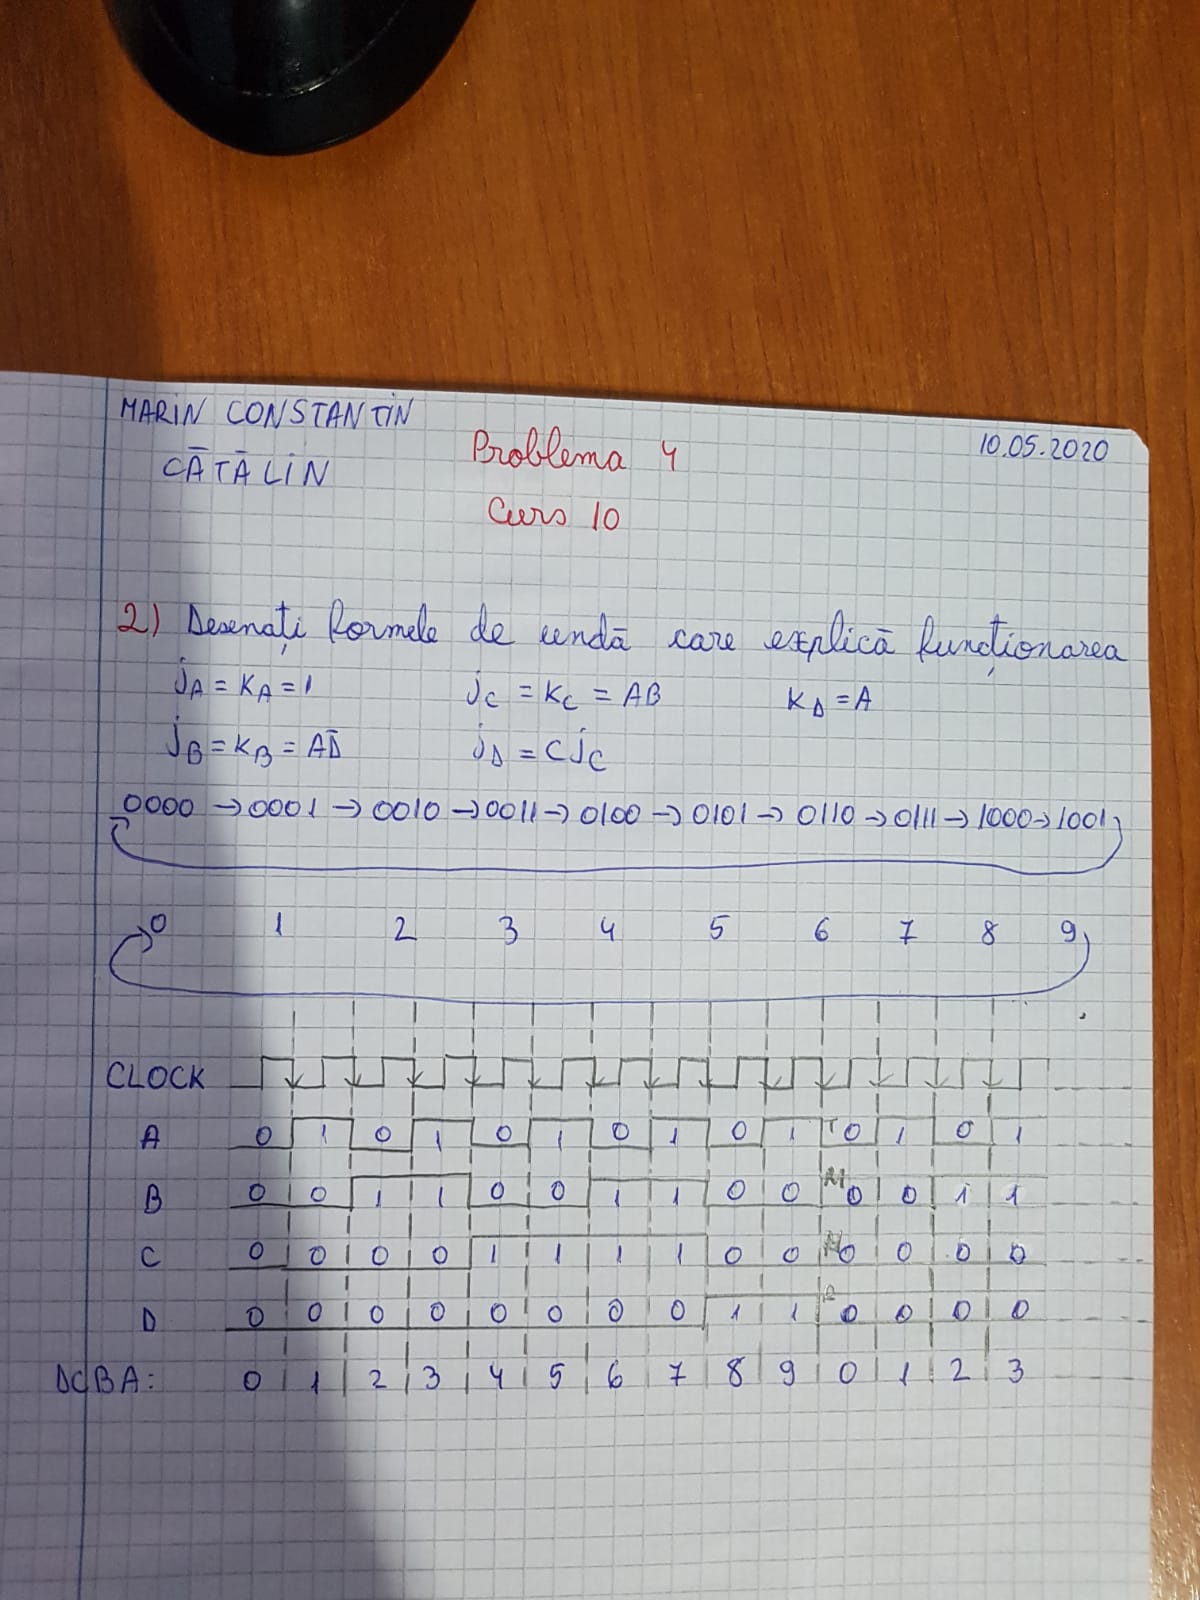 MARIN CONSTANTIN
CĂTĂLIN
Problema 4
10.05.2020
Curs 10
2) Desenați formele de undă care explică funcționarea
jA = KA = 1 jC = KC = AB KD = A
jB = KB = AD̄ jD = CjC
0000 → 0001 → 0010 → 0011 → 0100 → 0101 → 0110 → 0111 → 1000 → 1001
0 1 2 3 4 5 6 7 8 9
CLOCK
A 0 1 0 1 0 1 0 1 0 1 0 1 0 1
B 0 0 1 1 0 0 1 1 0 0 0 0 1 1
C 0 0 0 0 1 1 1 1 0 0 0 0 0 0
D 0 0 0 0 0 0 0 0 1 1 0 0 0 0
DCBA: 0 1 2 3 4 5 6 7 8 9 0 1 2 3